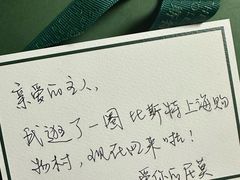 亲爱的主人，
我逛了一圈比斯特上海购
物村，现在回来啦！
爱你的